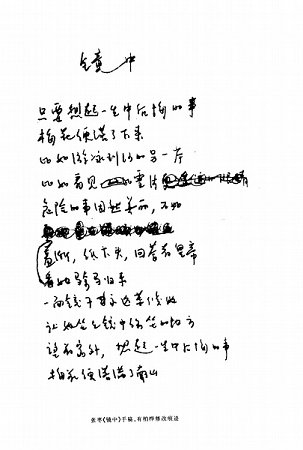 镜中
只要想起一生中后悔的事
梅花便落了下来
比如游泳到河的另一岸
比如看见
危险的事固然美丽，不如
羞惭，低下头，回答着皇帝
看她骑马归来
一面镜子永远等候她
让她坐到镜中常坐的地方
望着窗外，想起一生中后悔的事
梅花便落满了南山
张枣《镜中》手稿，有柏桦修改痕迹